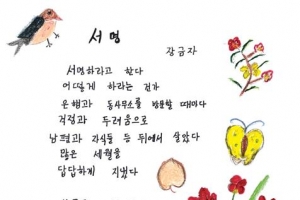 서명
장금자
서명하라고 한다
어떻게 하라는 건가
은행과 동사무소를 방문할 때마다
걱정과 두려움으로
남편과 자식들 등 뒤에서 살았다
많은 세월을
답답하게 지냈다